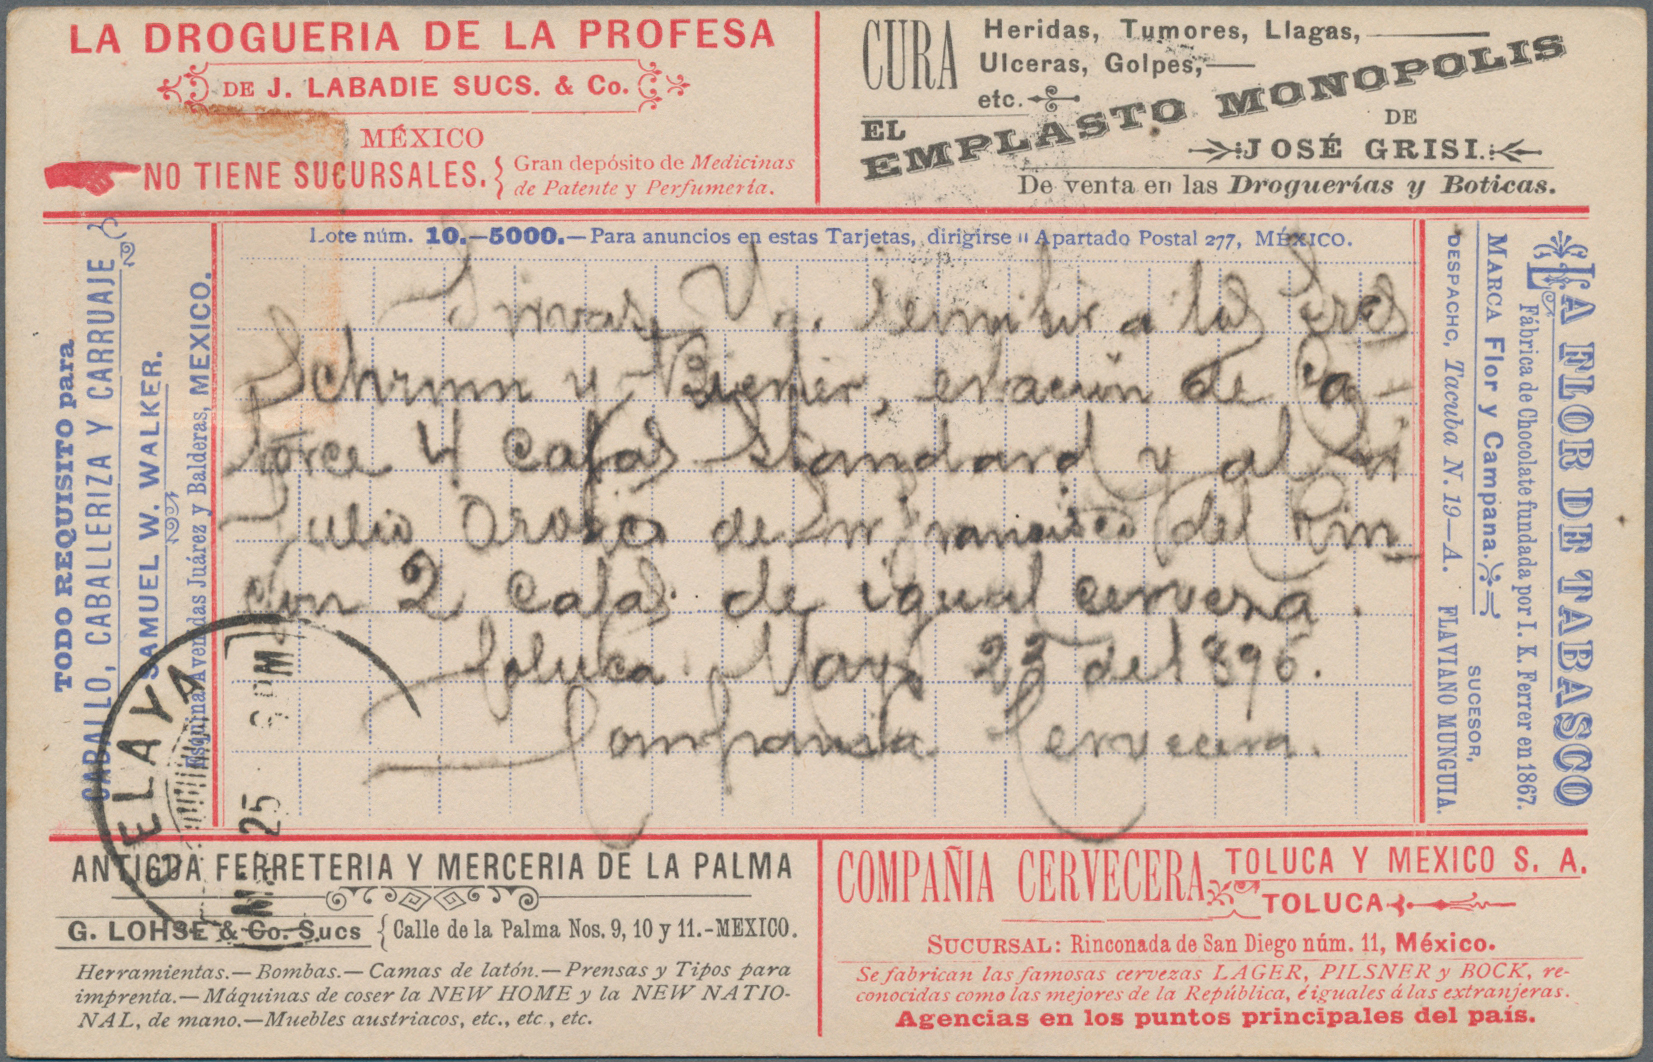 LA DROGUERIA DE LA PROFESA
DE J. LABADIE SUCS. & Co.
MÉXICO
NO TIENE SUCURSALES.
Gran depósito de Medicinas
de Patente y Perfumería.
CURA
Heridas, Tumores, Llagas,
Ulceras, Golpes,
etc.
EL
EMPLASTO MONOPOLIS
DE
JOSÉ GRISI.
De venta en las Droguerías y Boticas.
TODO REQUISITO para
CABALLO, CABALLERIZA Y CARRUAJE
SAMUEL W. WALKER.
Esquina Avenidas Juárez y Balderas, MEXICO.
Lote núm. 10.—5000.—Para anuncios en estas Tarjetas, dirigirse " Apartado Postal 277, MÉXICO.
Sirvase Vd. remitir a los Sres
y estación de Ca-
torce 4 cajas Standard y al Sr
Julio Orozco de Sn Francisco del Rin-
con 2 cajas de igual cerveza.
Toluca Mayo 23 de 1896.
Compañia Cervecera.
CELAYA
25
LA FLOR DE TABASCO
Fábrica de Chocolate fundada por I. K. Ferrer en 1867.
MARCA Flor y Campana.
SUCESOR,
DESPACHO, Tacuba N. 19—A. FLAVIANO MUNGUIA.
ANTIGUA FERRETERIA Y MERCERIA DE LA PALMA
G. LOHSE & Co. Sucs
Calle de la Palma Nos. 9, 10 y 11.-MEXICO.
Herramientas.—Bombas.—Camas de latón.—Prensas y Tipos para
imprenta.—Máquinas de coser la NEW HOME y la NEW NATIO-
NAL, de mano.—Muebles austriacos, etc., etc., etc.
COMPAÑIA CERVECERA TOLUCA Y MEXICO S. A.
TOLUCA
SUCURSAL: Rinconada de San Diego núm. 11, México.
Se fabrican las famosas cervezas LAGER, PILSNER y BOCK, re-
conocidas como las mejores de la República, é iguales á las extranjeras.
Agencias en los puntos principales del país.